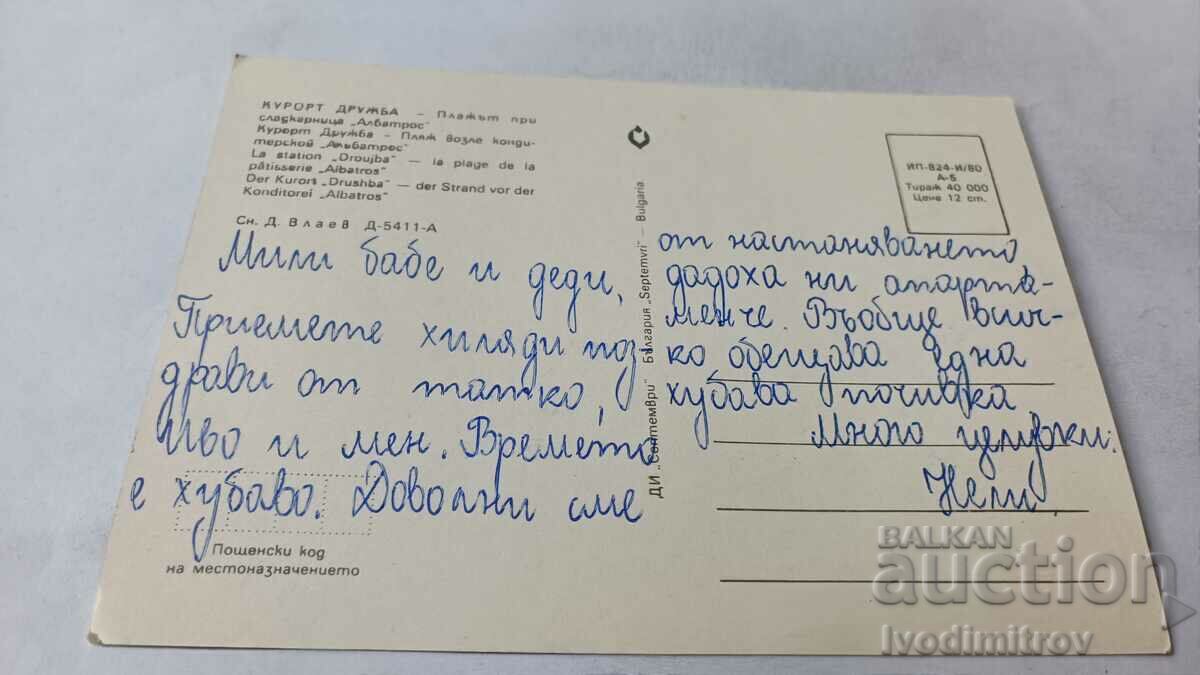 КУРОРТ ДРУЖБА – Плажът при
сладкарница „Албатрос"
Курорт Дружба – Пляж возле конди-
терской „Альбатрос"
La station „Droujba" — la plage de la
pâtisserie „Albatros"
Der Kurort „Drushba" — der Strand vor der
Konditorei „Albatros"
Сн. Д. Влаев Д-5411-А
Мили бабе и деди,
Приемете хиляди поз-
драви от татко,
Иво и мен. Времето
е хубаво. Доволни сме
Пощенски код
на местоназначението
ДИ „Септември" България „Septemvri" — Bulgaria
ИП-824-И/80
А-5
Тираж 40 000
Цена 12 ст.
от настаняването,
дадоха ни апарта-
менче. Въобще всич-
ко обещава една
хубава почивка
Много целувки:
Нели
BALKAN
auction
Ivodimitrov